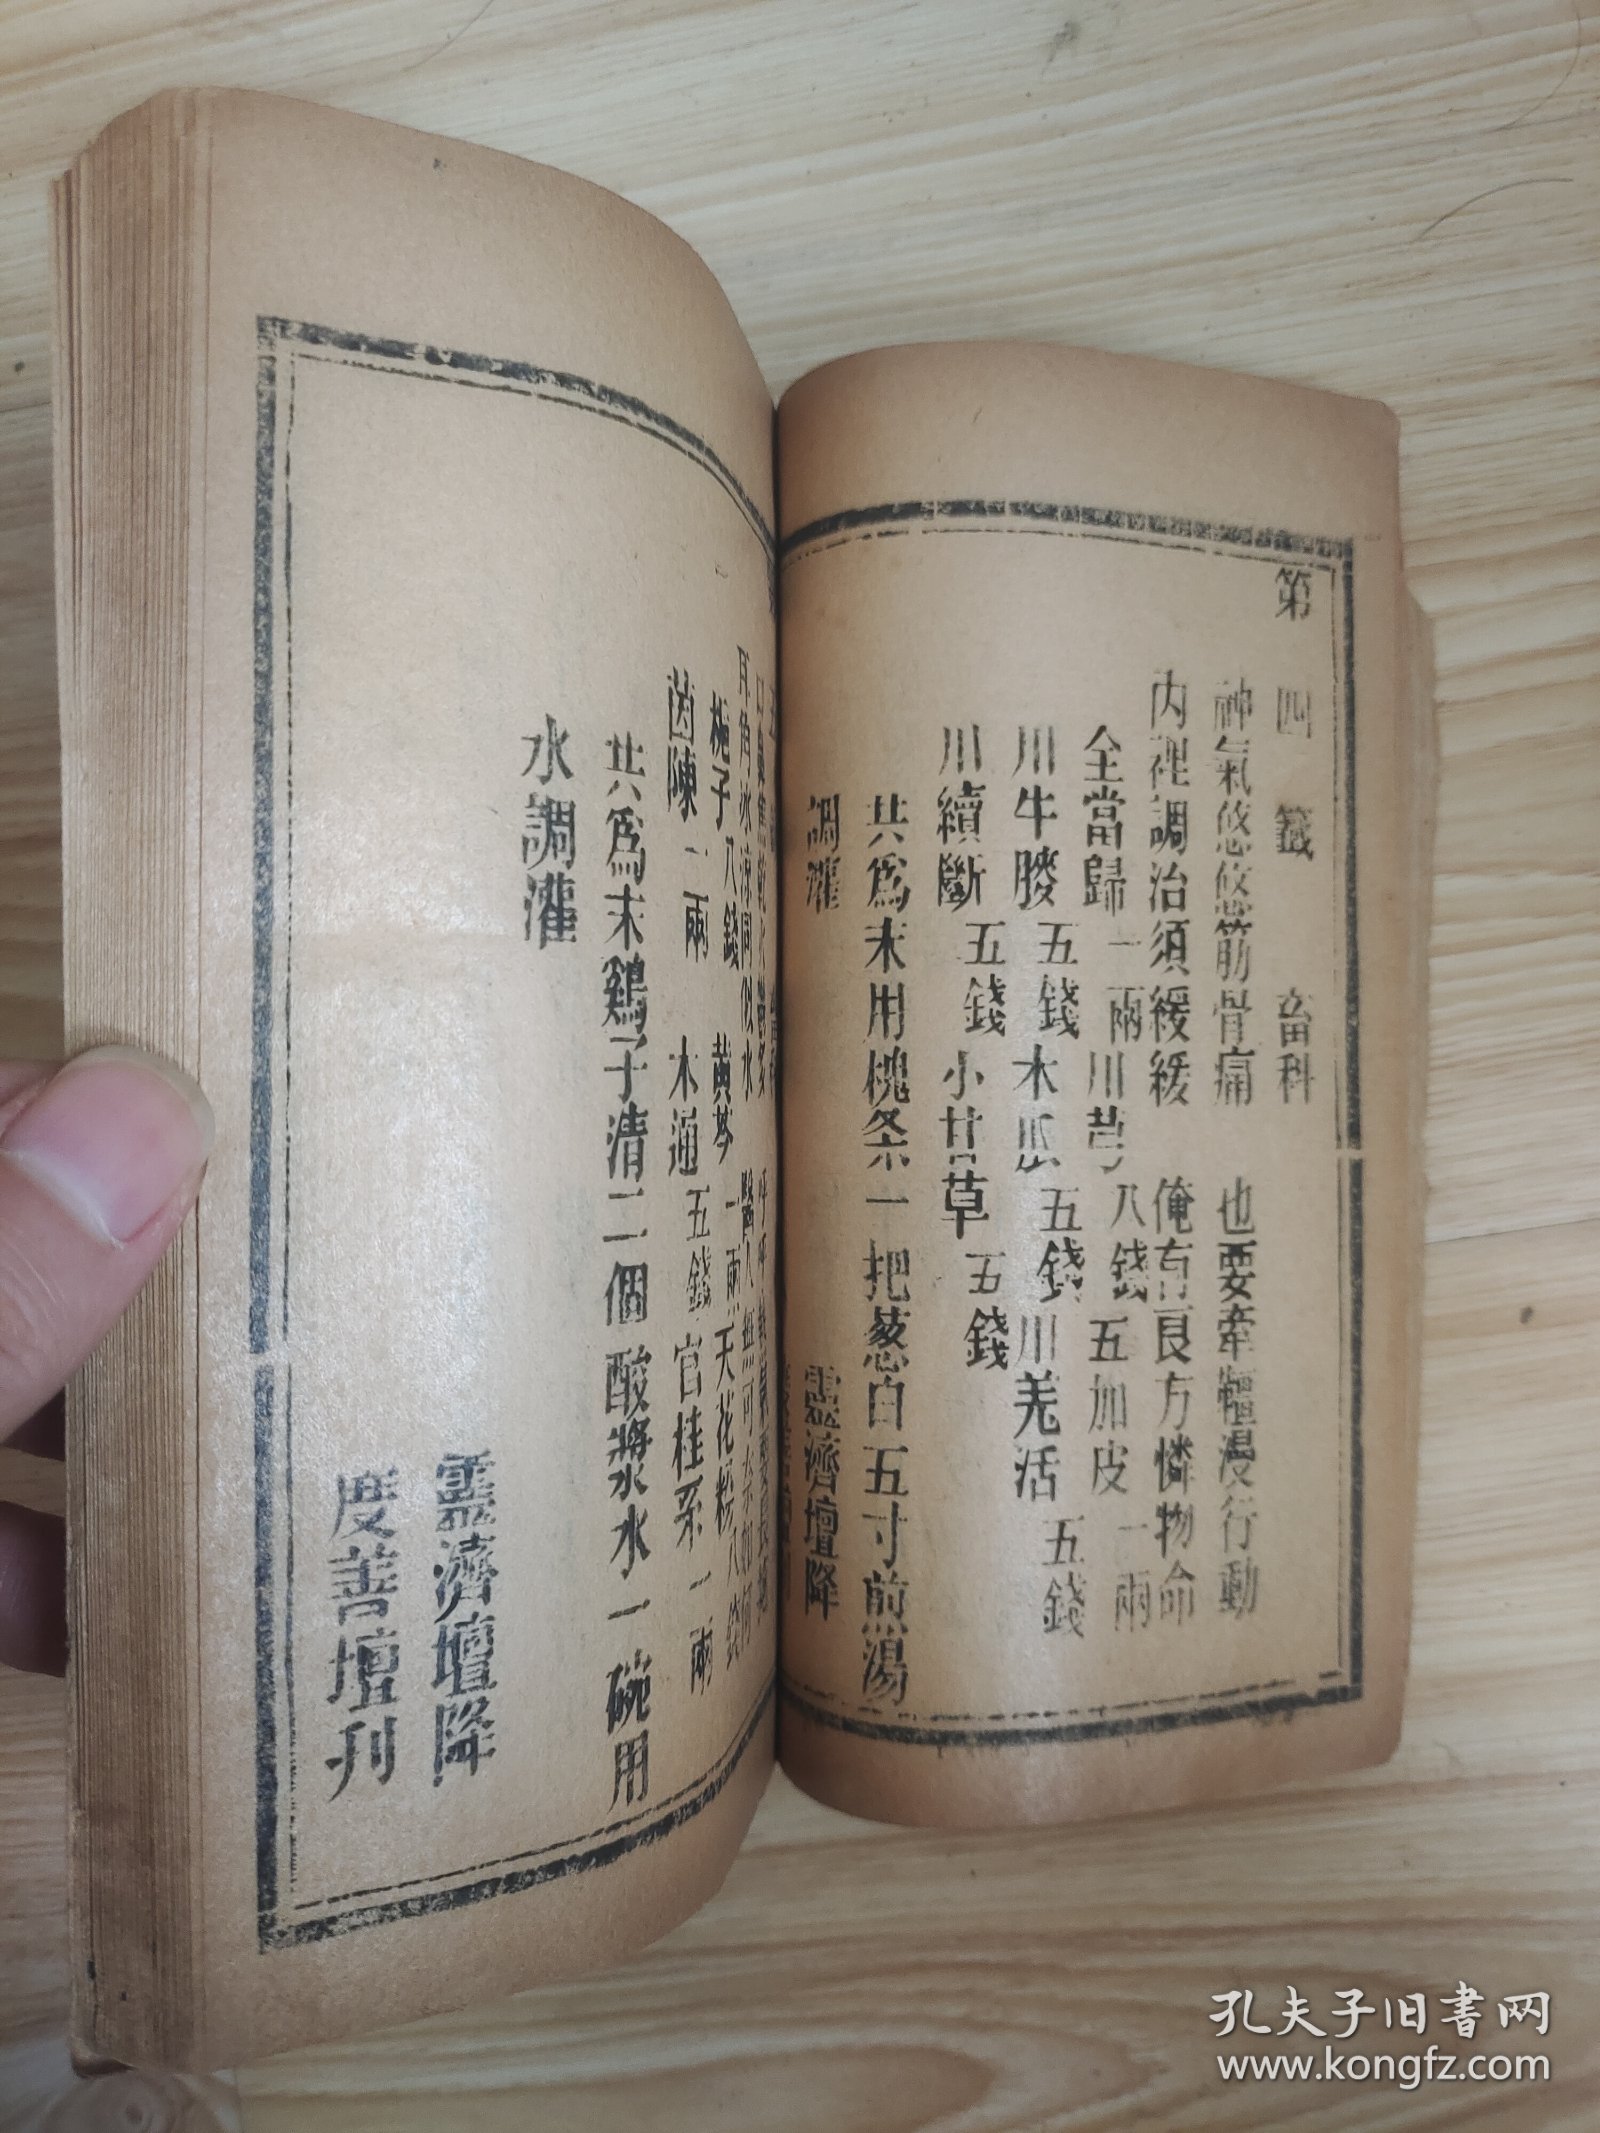 第四籤 畜科
神氣悠悠筋骨痛 也要牽韁漫行動
內裡調治須緩緩 俺有良方憐物命
全當歸一兩 川芎八錢 五加皮一兩
川牛膝五錢 木瓜五錢 川羗活五錢
川續斷五錢 小甘草五錢
共爲末用槐条一把葱白五寸煎湯
調灌
靈濟壇降
耳角冰凉同似水 醫人無可奈如何
梔子八錢 黄芩一兩 天花粉八錢
茵陳二兩 木通五錢 官桂系一兩
共爲末鷄子清二個酸漿水一碗用
水調灌
靈濟壇降
度善壇刊
孔夫子旧书网
www.kongfz.com